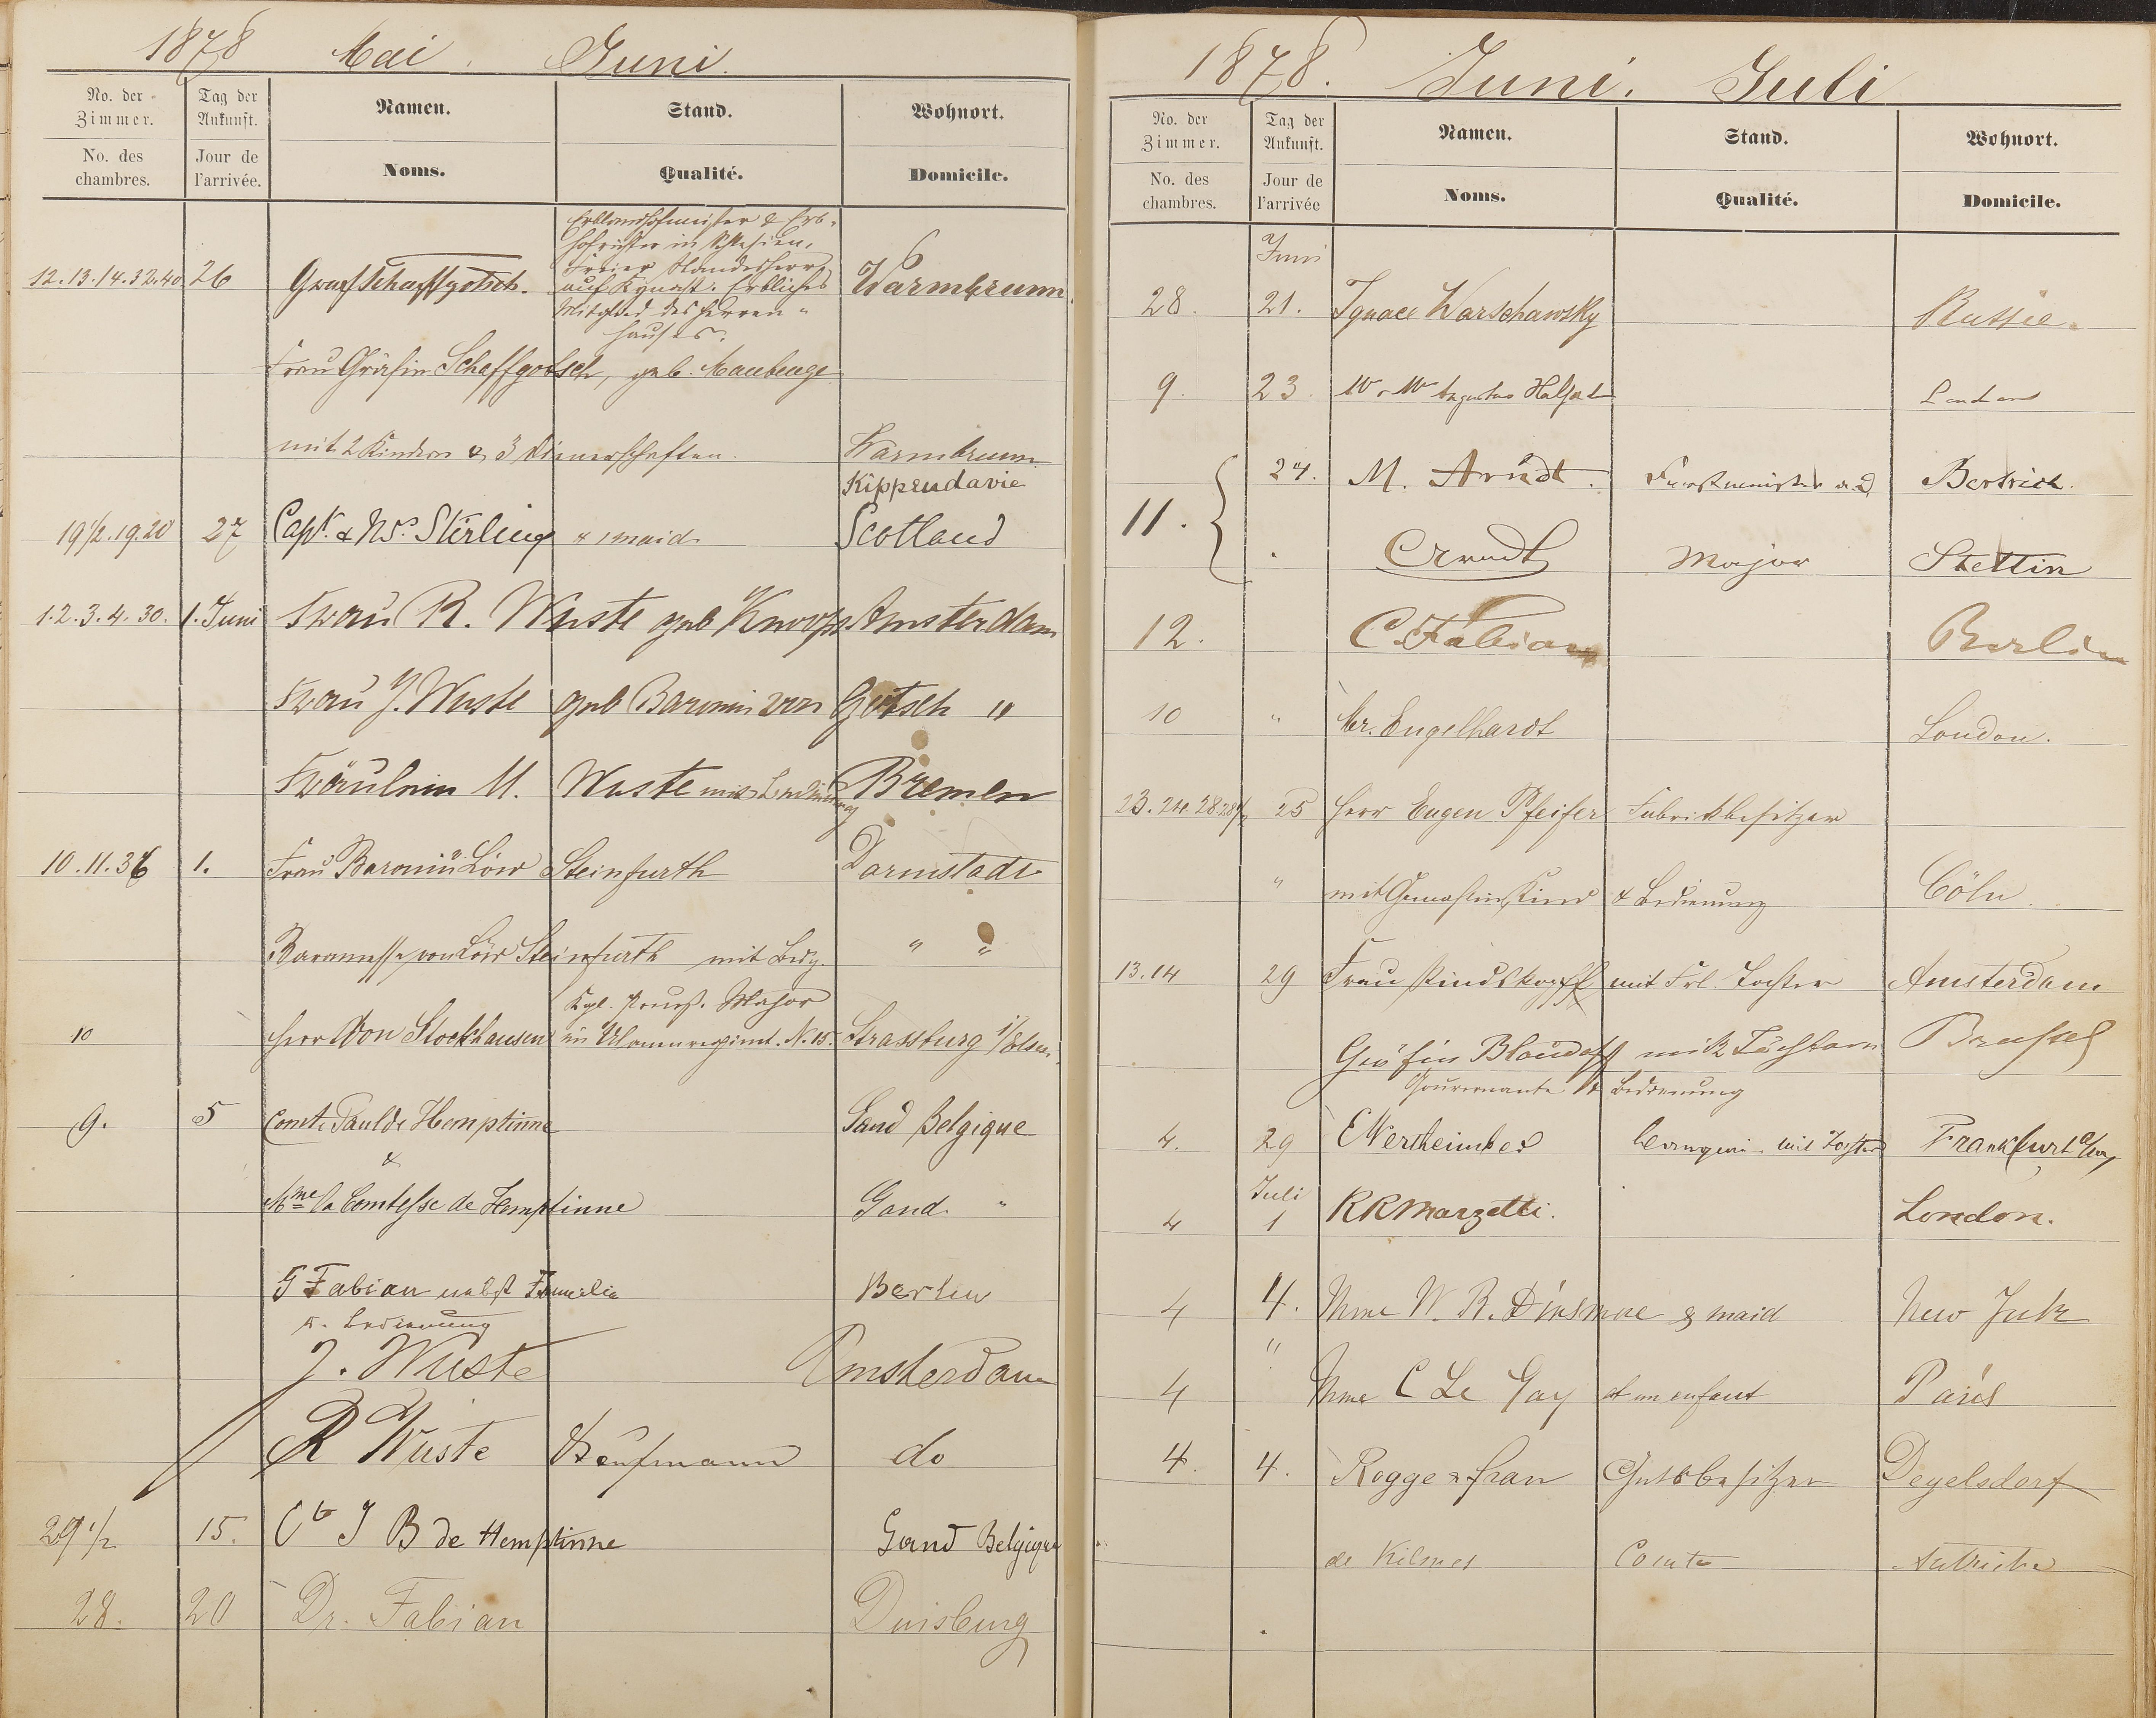 1878 Mai. Juni.
No. der Zimmer. Tag der Ankunft. Namen. Stand. Wohnort.
No. des chambres. Jour de l'arrivée. Noms. Qualité. Domicile.
Erblandhofmeister & Erb-
hofrichter in Schlesien,
Freier Standesherr
12.13.14.32.40 26 Graf Schaffgotsch. auf Kynast. Erbliches Warmbrunn
Mitglied des Herren-
hauses.
Frau Gräfin Schaffgotsch, geb. Maubeuge
mit 2 Kindern & 3 Dienerschaften. Warmbrunn
Kippendavie
19 1/2.19.20 27 Capt. & Mrs. Stirling & 1 maid Scotland
1.2.3.4.30. 1. Juni Frau R. Wuste geb Knoops Amsterdam
Frau J. Wuste geb Baronin von Gotsch "
Fräulein M. Wuste mit Bedienung Bremen
10.11.36 1. Frau Baronin v. Löw Steinfurth Darmstadt
Baronesse von Löw Steinfurth mit Bedg. " "
Kgl. Preuß. Major
10 Herr Von Stockhausen im Ulanenregiment. N. 15. Strassburg i/Elsass.
9. 5 Comte Paul de Hemptinne Gand Belgique
&
Mme la Comtesse de Hemptinne Gand "
G Fabian nebst Familie Berlin
u. Bedienung
J. Wuste Amsterdam
R Wuste Kaufmann do
29 1/2 15. Cte J B de Hemptinne Gand Belgique
28. 20 Dr. Fabian Duisburg
1878. Juni. Juli
No. der Zimmer. Tag der Ankunft. Namen. Stand. Wohnort.
No. des chambres. Jour de l'arrivée Noms. Qualité. Domicile.
Juni
28. 21. Ignace Warschawsky Russie.
9. 23. Augustus London
11. 24. M. Arndt. a.D. Bertrich.
" CArndt Major Stettin
12. C. Fabian Berlin
10 " Mr. Engelhardt London.
23.24.28.28 1/2 25 Herr Eugen Pfeifer Fabrikbesitzer
" mit Gemahlin, Kind & Bedienung Cöln.
13.14 29 Frau Rindskopff mit Frl. Tochter Amsterdam
Gräfin Bloudoff mit Töchtern Brussel
Gouvernante & Bedienung
4. 29 E Wertheimber mit Tochter Frankfurt a/M
Juli
4 1 RRMarzetti. London.
4 4. Mme W. R. Dinsmore & maid New York
4 " Mme C Le Gay et un enfant Paris
4. 4. Rogge & frau Gutsbesitzer Deyelsdorf
de Comte Autriche